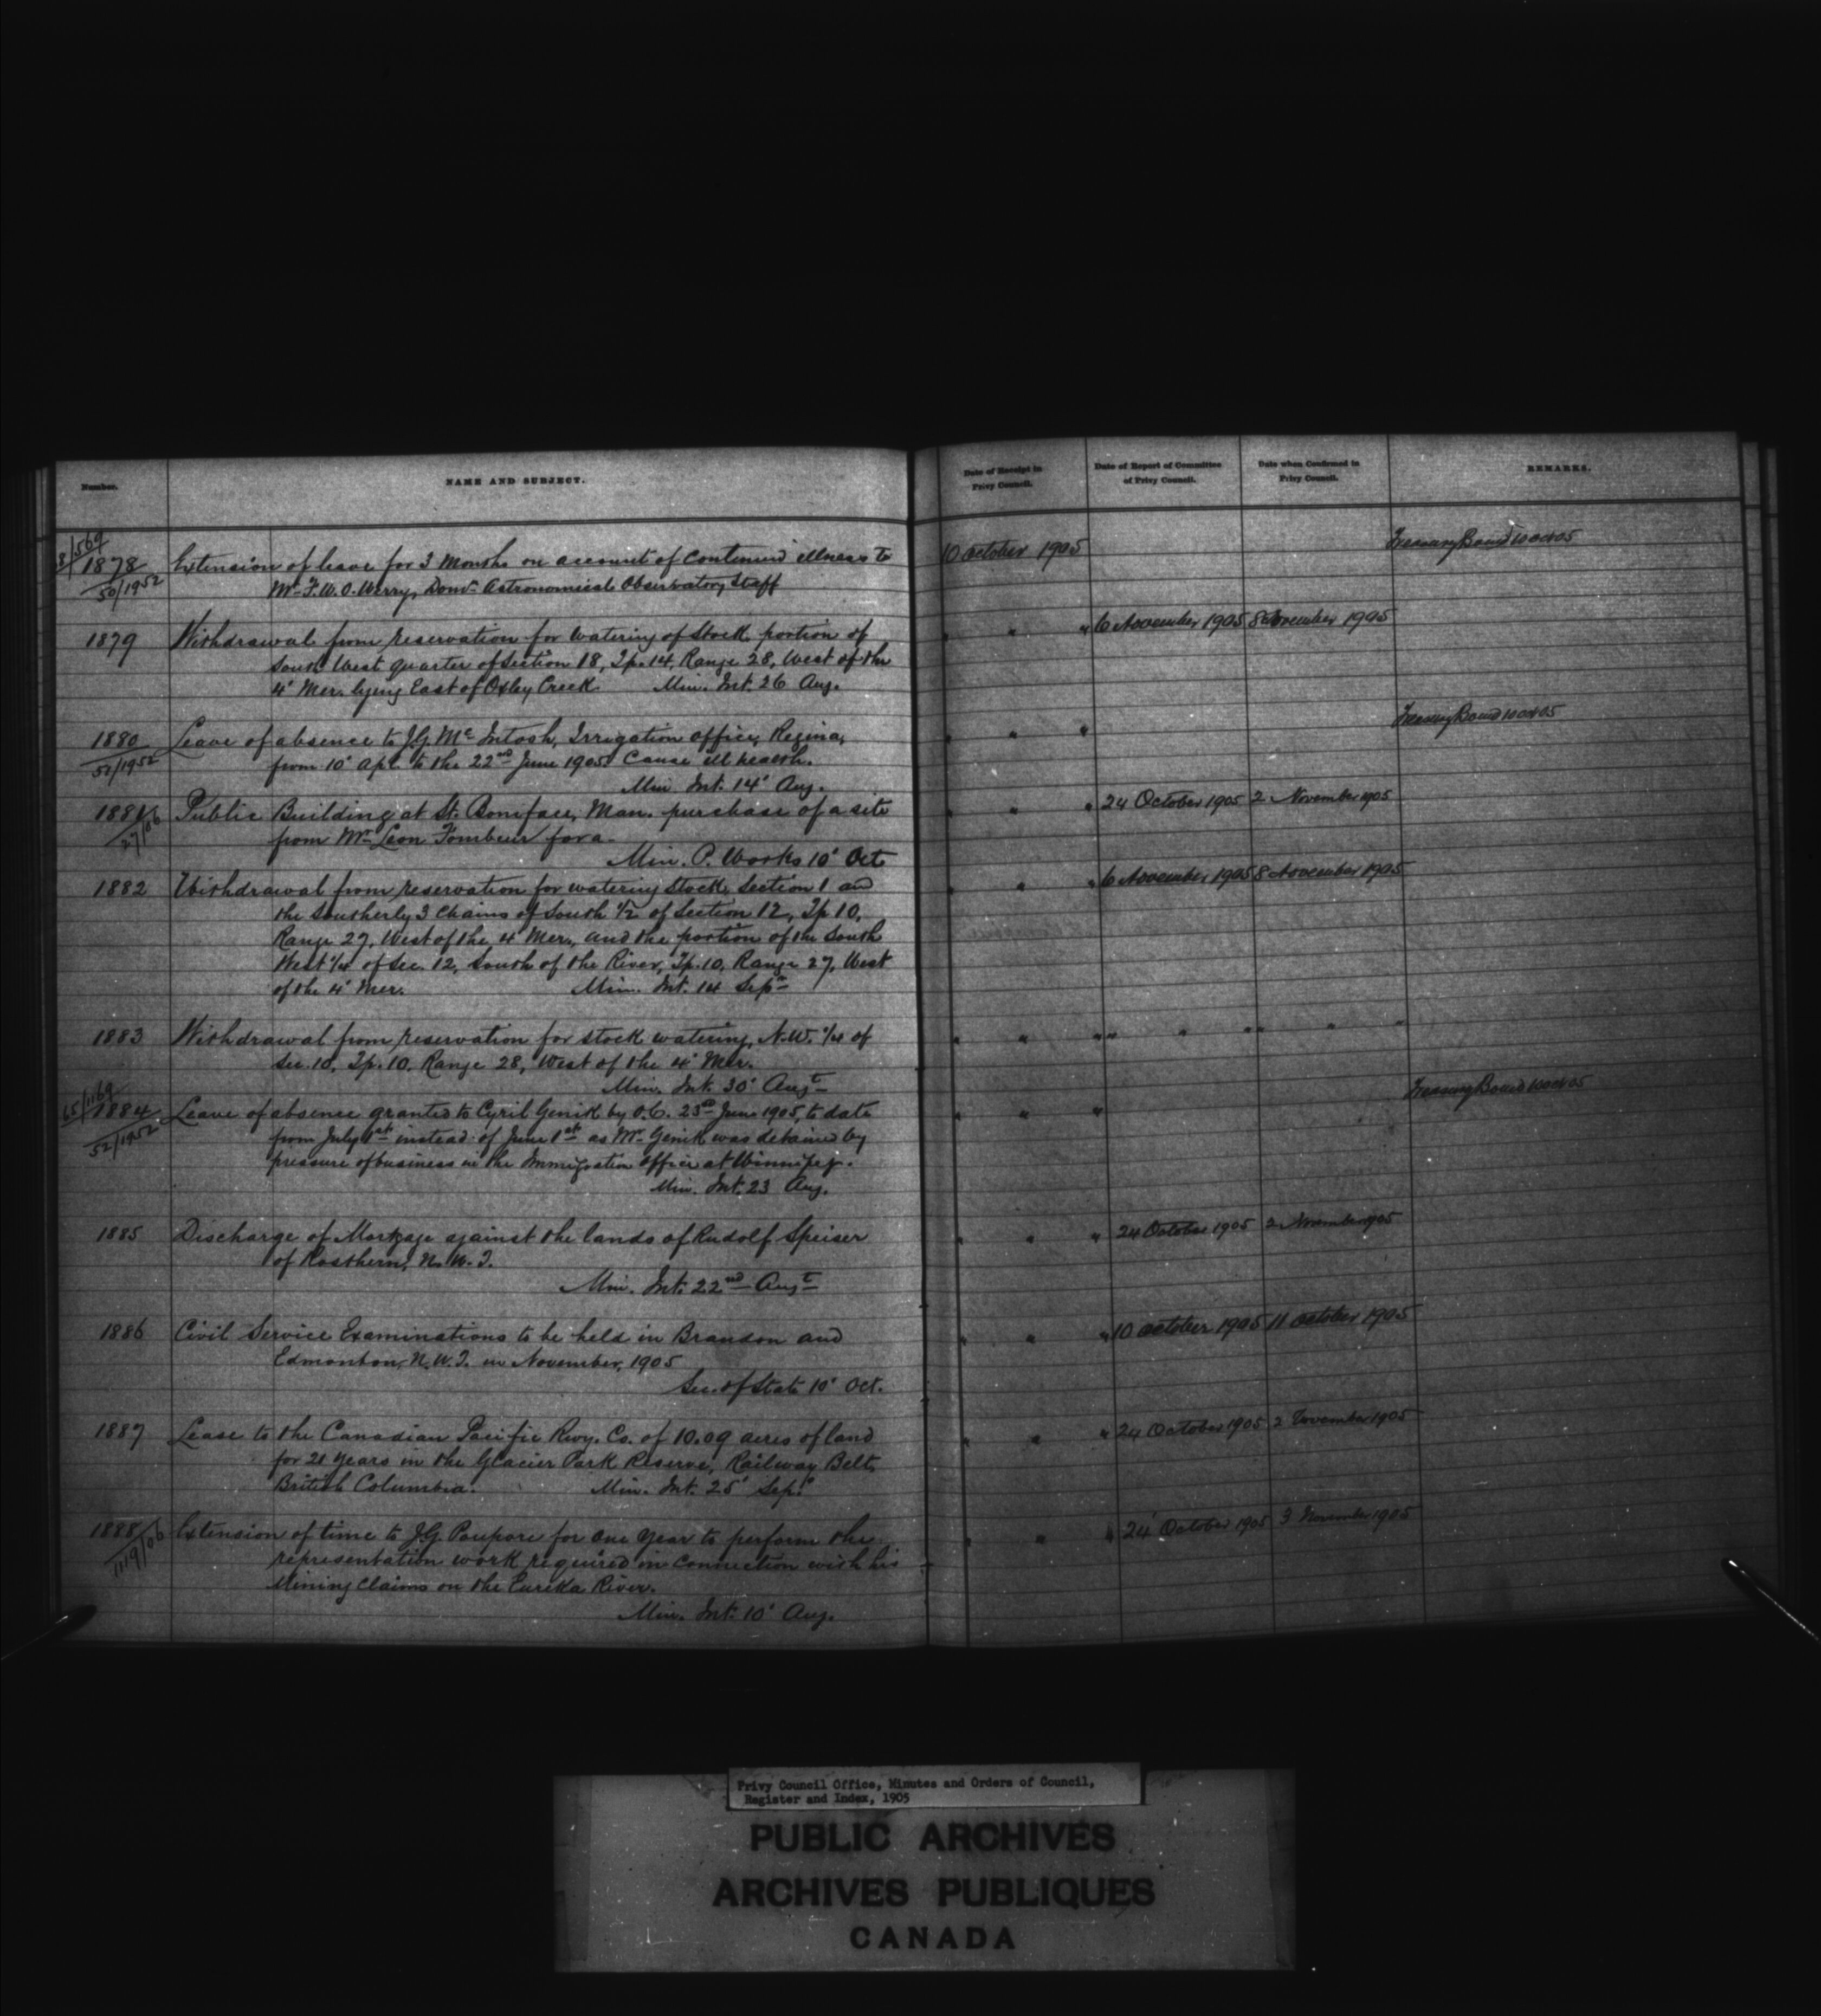 Number.
NAME AND SUBJECT.
Date of Receipt in Privy Council.
Date of Report of Committee of Privy Council.
Date when Confirmed in Privy Council.
REMARKS.
8/569
1878
50/1952
Extension of leave for 3 Months on account of continued illness to
Mr. F. W. O. Werry, Domn. Astronomical Observatory Staff
10 October 1905
Treasury Board 10 Oct 05
1879
Withdrawal from reservation for watering of Stock portion of
South West quarter of Section 18, Tp. 14, Range 28, West of the
4' Mer. lying East of Oxley Creek. Min. Int. 26 Aug.
" " " 6 November 1905 8 November 1905
1880
52/1952
Leave of absence to J. G. McIntosh, Irrigation office, Regina,
from 10' Apl. to the 22nd June 1905. Cause ill health.
Min. Int. 14' Aug.
" " "
Treasury Board 10 Oct 05
1881
27/06
Public Building at St. Boniface, Man. purchase of a site
from Mr. Leon Tombeur for a-
Min. P. Works 10' Oct
" " " 24 October 1905 2 November 1905
1882
Withdrawal from reservation for watering Stock, Section 1 and
the Southerly 3 Chains of South 1/2 of Section 12, Tp 10,
Range 27, West of the 4' Mer., and the portion of the South
West 1/4 of Sec. 12, South of the River, Tp. 10, Range 27, West
of the 4' Mer. Min. Int. 14 Sepr
" " " 6 November 1905 8 November 1905
1883
Withdrawal from reservation for stock watering, N.W. 1/4 of
Sec. 10, Tp. 10, Range 28, West of the 4' Mer.
Min. Int. 30' Augt
" " " " " " " " "
65/1169
1884
52/1952
Leave of absence granted to Cyril Genik by O.C. 23rd June 1905, to date
from July 1st instead of June 1st as Mr. Genik was detained by
pressure of business in the Immigration office at Winnipeg.
Min. Int. 23 Aug.
" " "
Treasury Board 10 Oct 05
1885
Discharge of Mortgage against the lands of Rudolf Speiser
of Rosthern, N.W.T.
Min. Int. 22nd Augt
" " " 24 October 1905 2 November 1905
1886
Civil Service Examinations to be held in Brandon and
Edmonton, N.W.T. in November, 1905
Sec. of State 10' Oct.
" " " 10 October 1905 11 October 1905
1887
Lease to the Canadian Pacific Rwy. Co. of 10.09 acres of land
for 21 years in the Glacier Park Reserve, Railway Belt,
British Columbia. Min. Int. 25' Sep.
" " " 24 October 1905 2 November 1905
1888
1119/06
Extension of time to J. G. Poupore for one year to perform the
representation work required in connection with his
Mining Claims on the Eureka River.
Min. Int. 10' Aug.
" " " 24' October 1905 3 November 1905
Privy Council Office, Minutes and Orders of Council,
Register and Index, 1905
PUBLIC ARCHIVES
ARCHIVES PUBLIQUES
CANADA